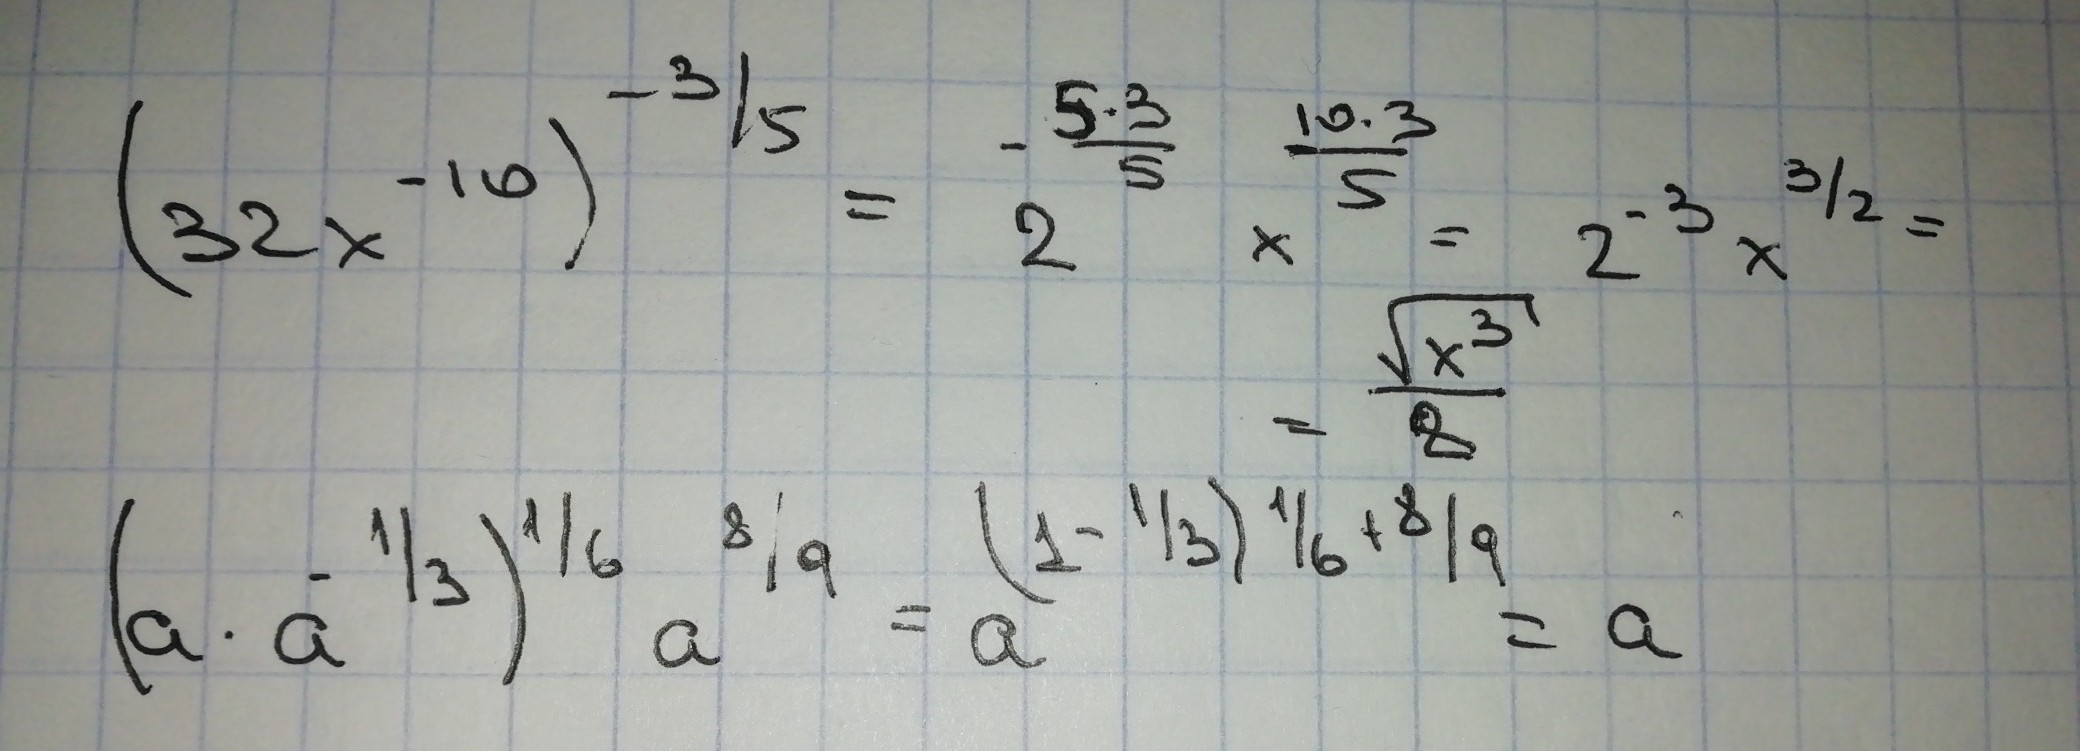 (32x^{-10})^{-3/5} = 2^{-\frac{5·3}{5}} x^{\frac{10·3}{5}} = 2^{-3} x^{3/2} =
= \frac{\sqrt{x^3}}{8}
(a · a^{-1/3})^{1/6} a^{8/9} = a^{(1-1/3)1/6+8/9} = a